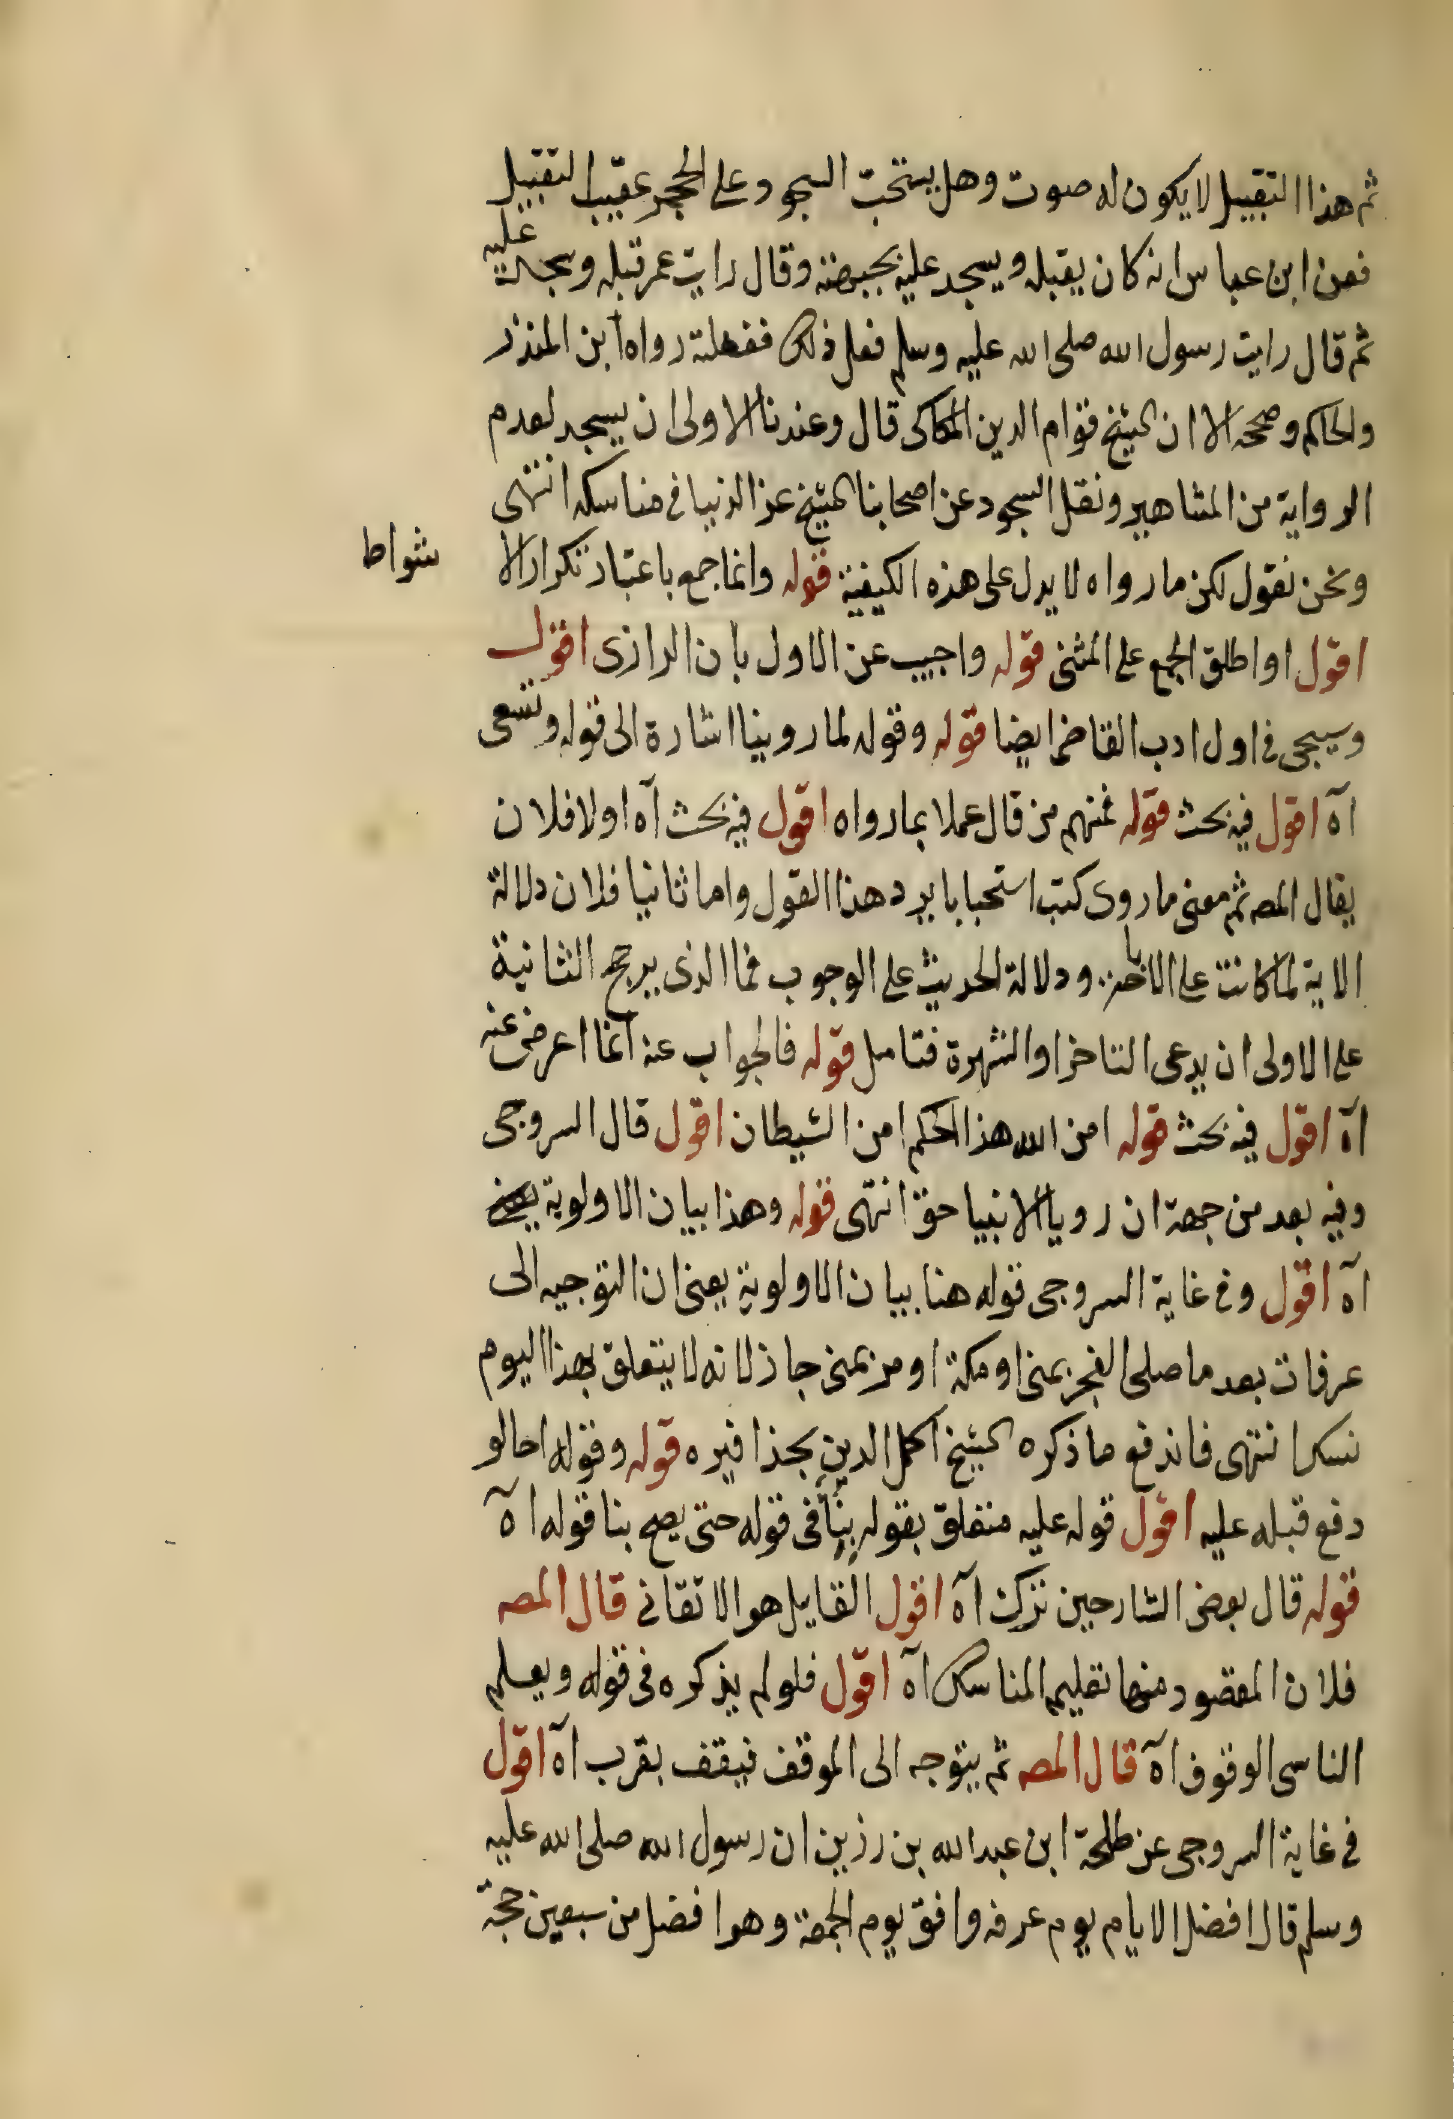 ثم هذا التقبيل لا يكون له صوت وهل يستحب السجود على الحجر عقيب التقبيل
فعن ابن عباس انه كان يقبله ويسجد عليه بجبهته وقال رايت عمر قبله وسجد عليه
ثم قال رايت رسول الله صلى الله عليه وسلم فعل ذلك ففعلته رواه ابن المنذر
والحاكم وصححه الا ان الشيخ قوام الدين الكاكى قال وعندنا الاولى ان يسجد لعدم
الرواية من المشاهير ونقل السجود عن اصحابنا الشيخ عز الدنيا فى مناسكه انتهى
ونحن نقول لكن ما رواه لا يدل على هذه الكيفية قوله وانما جمع باعتبار تكرار الا
شواط
اقول او اطلق الجمع على المثنى قوله واجيب عن الاول بان الرازى اقول
وسيجى فى اول ادب القاضى ايضا قوله وقوله لما روينا اشارة الى قوله وتسعى
اه اقول فيه بحث قوله فمنهم من قال عملا بما رواه اقول فيه بحث اه اولا فلان
يقال المصه ثم معنى ما روى كتب استحبابا يرد هذا القول واما ثانيا فلان دلالة
الاية لما كانت على الاباحة ودلالة الحديث على الوجوب فما الذى يرجح الثانية
على الاولى ان يدعى التاخر او الشهرة فتامل قوله فالجواب عنه انما اعرض عنه
اه اقول فيه بحث قوله امن الله هذا الحكم امن الشيطان اقول قال السروجى
وفيه بعد من جهة ان رويا الانبيا حق انتهى قوله وهذا بيان الاولوية
اه اقول وفى غاية السروجى قوله هنا بيان الاولوية يعنى ان التوجيه الى
عرفات بعد ما صلى الفجر بمنى او مكة او من بمنى جاز لانه لا يتعلق بهذا اليوم
نسك انتهى فاندفع ما ذكره الشيخ اكمل الدين بحذافيره قوله وقوله اما لو
دفع قبله عليه اقول قوله عليه متعلق بقوله بنأ فى قوله حتى يصح بنا قوله اه
قوله قال بعض الشارحين ترك اه اقول القايل هو الاتقانى قال المصه
فلان المقصود منها تعليم المناسك اه اقول فلو لم يذكره فى قوله ويعلم
الناس الوقوف اه قال المصه ثم يتوجه الى الموقف فيقف بقرب اه اقول
فى غاية السروجى عن طلحة ابن عبد الله بن رزين ان رسول الله صلى الله عليه
وسلم قال افضل الايام يوم عرفه وافق يوم الجمعة وهو افضل من سبعين حجة